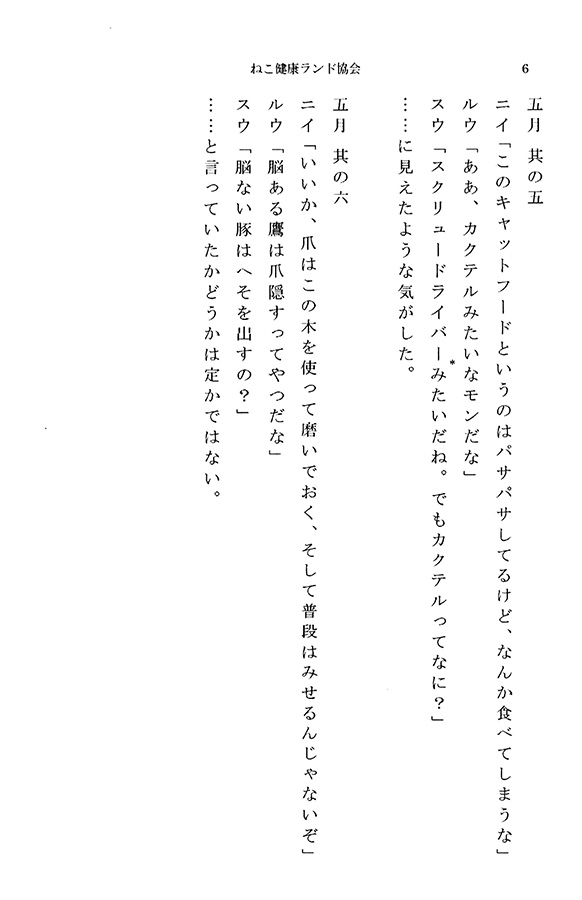 ねこ健康ランド協会
6
五月 其の五
ニイ「このキャットフードというのはパサパサしてるけど、なんか食べてしまうな」
ルウ「ああ、カクテルみたいなモンだな」
スウ「スクリュードライバー*みたいだね。でもカクテルってなに?」
……に見えたような気がした。
五月 其の六
ニイ「いいか、爪はこの木を使って磨いでおく、そして普段はみせるんじゃないぞ」
ルウ「脳ある鷹は爪隠すってやつだな」
スウ「脳ない豚はへそを出すの?」
……と言っていたかどうかは定かではない。